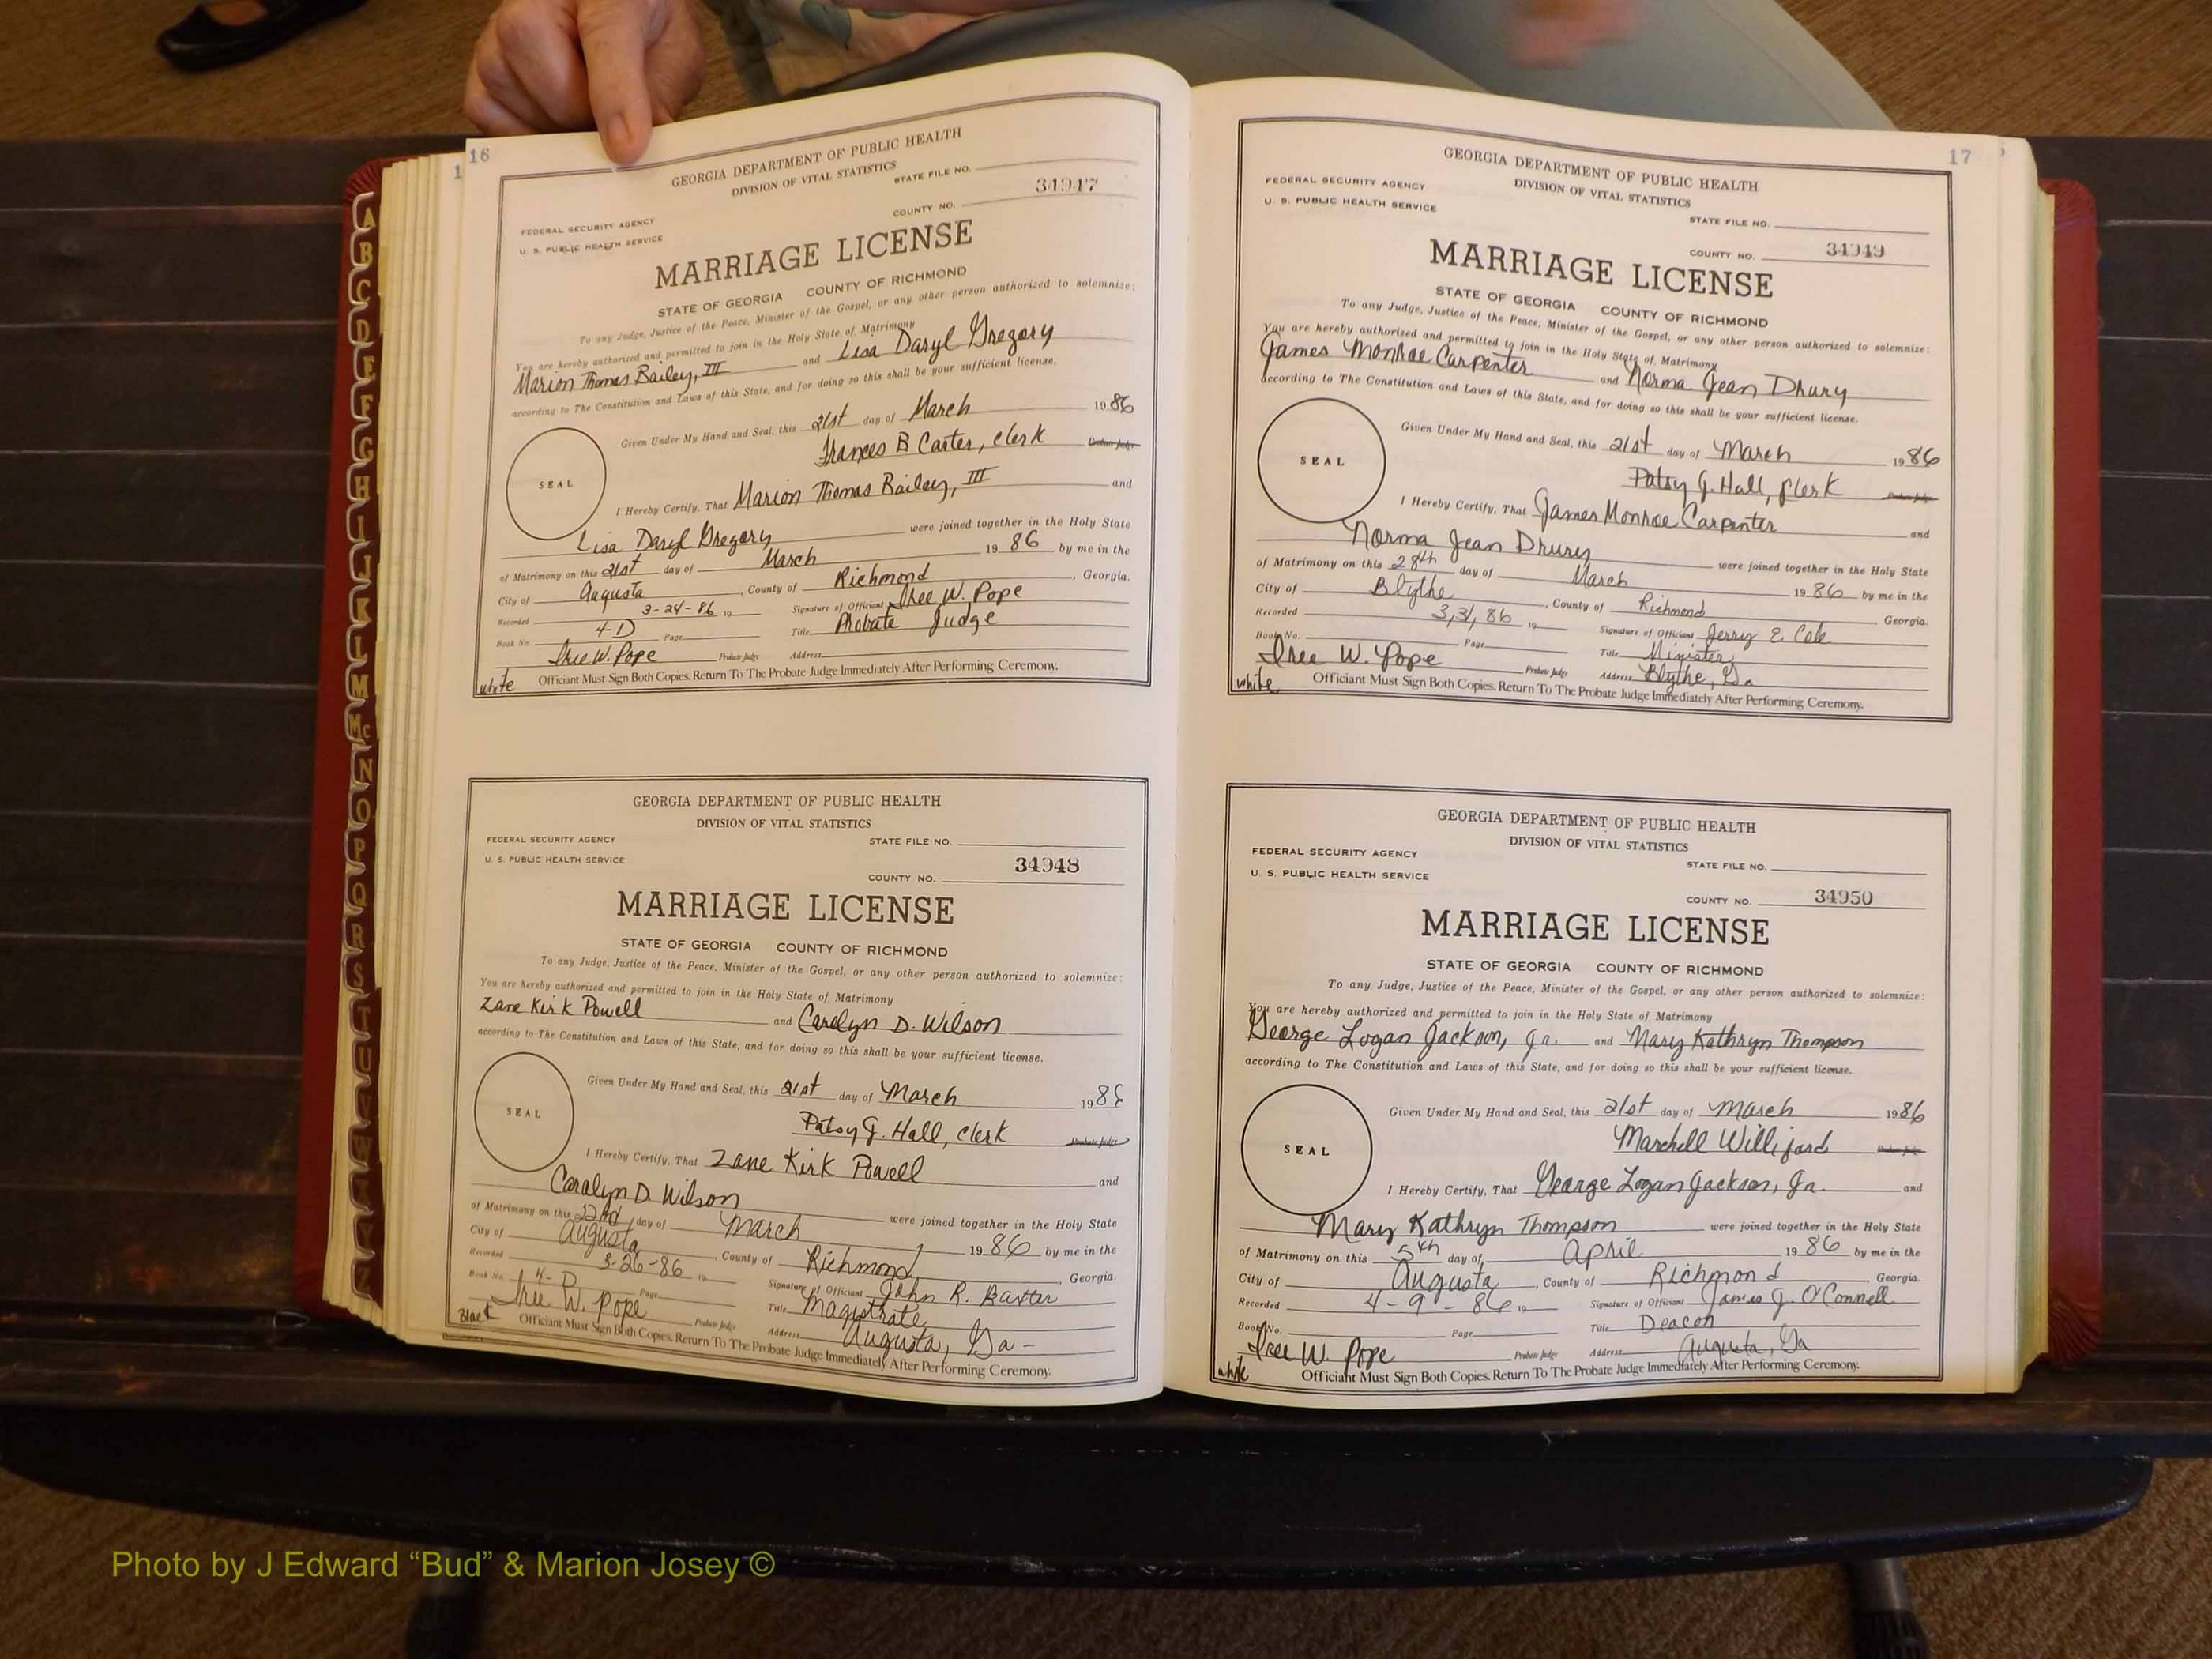 16
GEORGIA DEPARTMENT OF PUBLIC HEALTH
DIVISION OF VITAL STATISTICS
STATE FILE NO.
34947
COUNTY NO.
FEDERAL SECURITY AGENCY
U. S. PUBLIC HEALTH SERVICE
MARRIAGE LICENSE
STATE OF GEORGIA COUNTY OF RICHMOND
To any Judge, Justice of the Peace, Minister of the Gospel, or any other person authorized to solemnize:
You are hereby authorized and permitted to join in the Holy State of Matrimony
Marion Thomas Bailey, III and Lisa Daryl Gregory
according to The Constitution and Laws of this State, and for doing so this shall be your sufficient license.
Given Under My Hand and Seal, this 21st day of March 1986
Frances B Carter, Clerk Probate Judge
SEAL
I Hereby Certify, That Marion Thomas Bailey, III and
Lisa Daryl Gregory were joined together in the Holy State
of Matrimony on this 21st day of March 1986 by me in the
City of Augusta, County of Richmond, Georgia.
Recorded 3-24-86 19 Signature of Officiant Iree W. Pope
Book No. 4-D Page Title Probate Judge
Iree W. Pope Probate Judge Address
white Officiant Must Sign Both Copies. Return To The Probate Judge Immediately After Performing Ceremony.
GEORGIA DEPARTMENT OF PUBLIC HEALTH
DIVISION OF VITAL STATISTICS
FEDERAL SECURITY AGENCY STATE FILE NO.
U. S. PUBLIC HEALTH SERVICE 34948
COUNTY NO.
MARRIAGE LICENSE
STATE OF GEORGIA COUNTY OF RICHMOND
To any Judge, Justice of the Peace, Minister of the Gospel, or any other person authorized to solemnize:
You are hereby authorized and permitted to join in the Holy State of Matrimony
Zane Kirk Powell and Carolyn D. Wilson
according to The Constitution and Laws of this State, and for doing so this shall be your sufficient license.
Given Under My Hand and Seal, this 21st day of March 1986
Patsy G. Hall, Clerk Probate Judge
SEAL
I Hereby Certify, That Zane Kirk Powell and
Caralyn D. Wilson were joined together in the Holy State
of Matrimony on this 22nd day of March 1986 by me in the
City of Augusta, County of Richmond, Georgia.
Recorded 3-26-86 19 Signature of Officiant John R. Baxter
Book No. 4-D Page Title Magistrate
Iree W. Pope Probate Judge Address Augusta, Ga-
Black Officiant Must Sign Both Copies. Return To The Probate Judge Immediately After Performing Ceremony.
17
GEORGIA DEPARTMENT OF PUBLIC HEALTH
DIVISION OF VITAL STATISTICS
FEDERAL SECURITY AGENCY
U. S. PUBLIC HEALTH SERVICE
STATE FILE NO.
COUNTY NO. 34949
MARRIAGE LICENSE
STATE OF GEORGIA COUNTY OF RICHMOND
To any Judge, Justice of the Peace, Minister of the Gospel, or any other person authorized to solemnize:
You are hereby authorized and permitted to join in the Holy State of Matrimony
James Monroe Carpenter and Norma Jean Drury
according to The Constitution and Laws of this State, and for doing so this shall be your sufficient license.
Given Under My Hand and Seal, this 21st day of March 1986
Patsy G. Hall, Clerk Probate Judge
SEAL
I Hereby Certify, That James Monroe Carpenter and
Norma Jean Drury were joined together in the Holy State
of Matrimony on this 28th day of March 1986 by me in the
City of Blythe, County of Richmond Georgia.
Recorded 3,31,86 19 Signature of Officiant Jerry E. Cole
Book No. Page Title Minister
Iree W. Pope Probate Judge Address Blythe, Ga
white Officiant Must Sign Both Copies. Return To The Probate Judge Immediately After Performing Ceremony.
GEORGIA DEPARTMENT OF PUBLIC HEALTH
DIVISION OF VITAL STATISTICS
FEDERAL SECURITY AGENCY
U. S. PUBLIC HEALTH SERVICE
STATE FILE NO.
COUNTY NO. 34950
MARRIAGE LICENSE
STATE OF GEORGIA COUNTY OF RICHMOND
To any Judge, Justice of the Peace, Minister of the Gospel, or any other person authorized to solemnize:
You are hereby authorized and permitted to join in the Holy State of Matrimony
George Logan Jackson, Jr. and Mary Kathryn Thompson
according to The Constitution and Laws of this State, and for doing so this shall be your sufficient license.
Given Under My Hand and Seal, this 21st day of March 1986
Marchell Williford Probate Judge
SEAL
I Hereby Certify, That George Logan Jackson, Jr. and
Mary Kathryn Thompson were joined together in the Holy State
of Matrimony on this 5th day of April 1986 by me in the
City of Augusta, County of Richmond Georgia.
Recorded 4-9-86 19 Signature of Officiant James J. O'Connell
Book No. Page Title Deacon
Iree W. Pope Probate Judge Address Augusta, Ga
white Officiant Must Sign Both Copies. Return To The Probate Judge Immediately After Performing Ceremony.
A
B
C
D
E
F
G
H
I
J
K
L
M
Mc
N
O
P
Q
R
S
T
U
V
W
Photo by J Edward “Bud” & Marion Josey ©